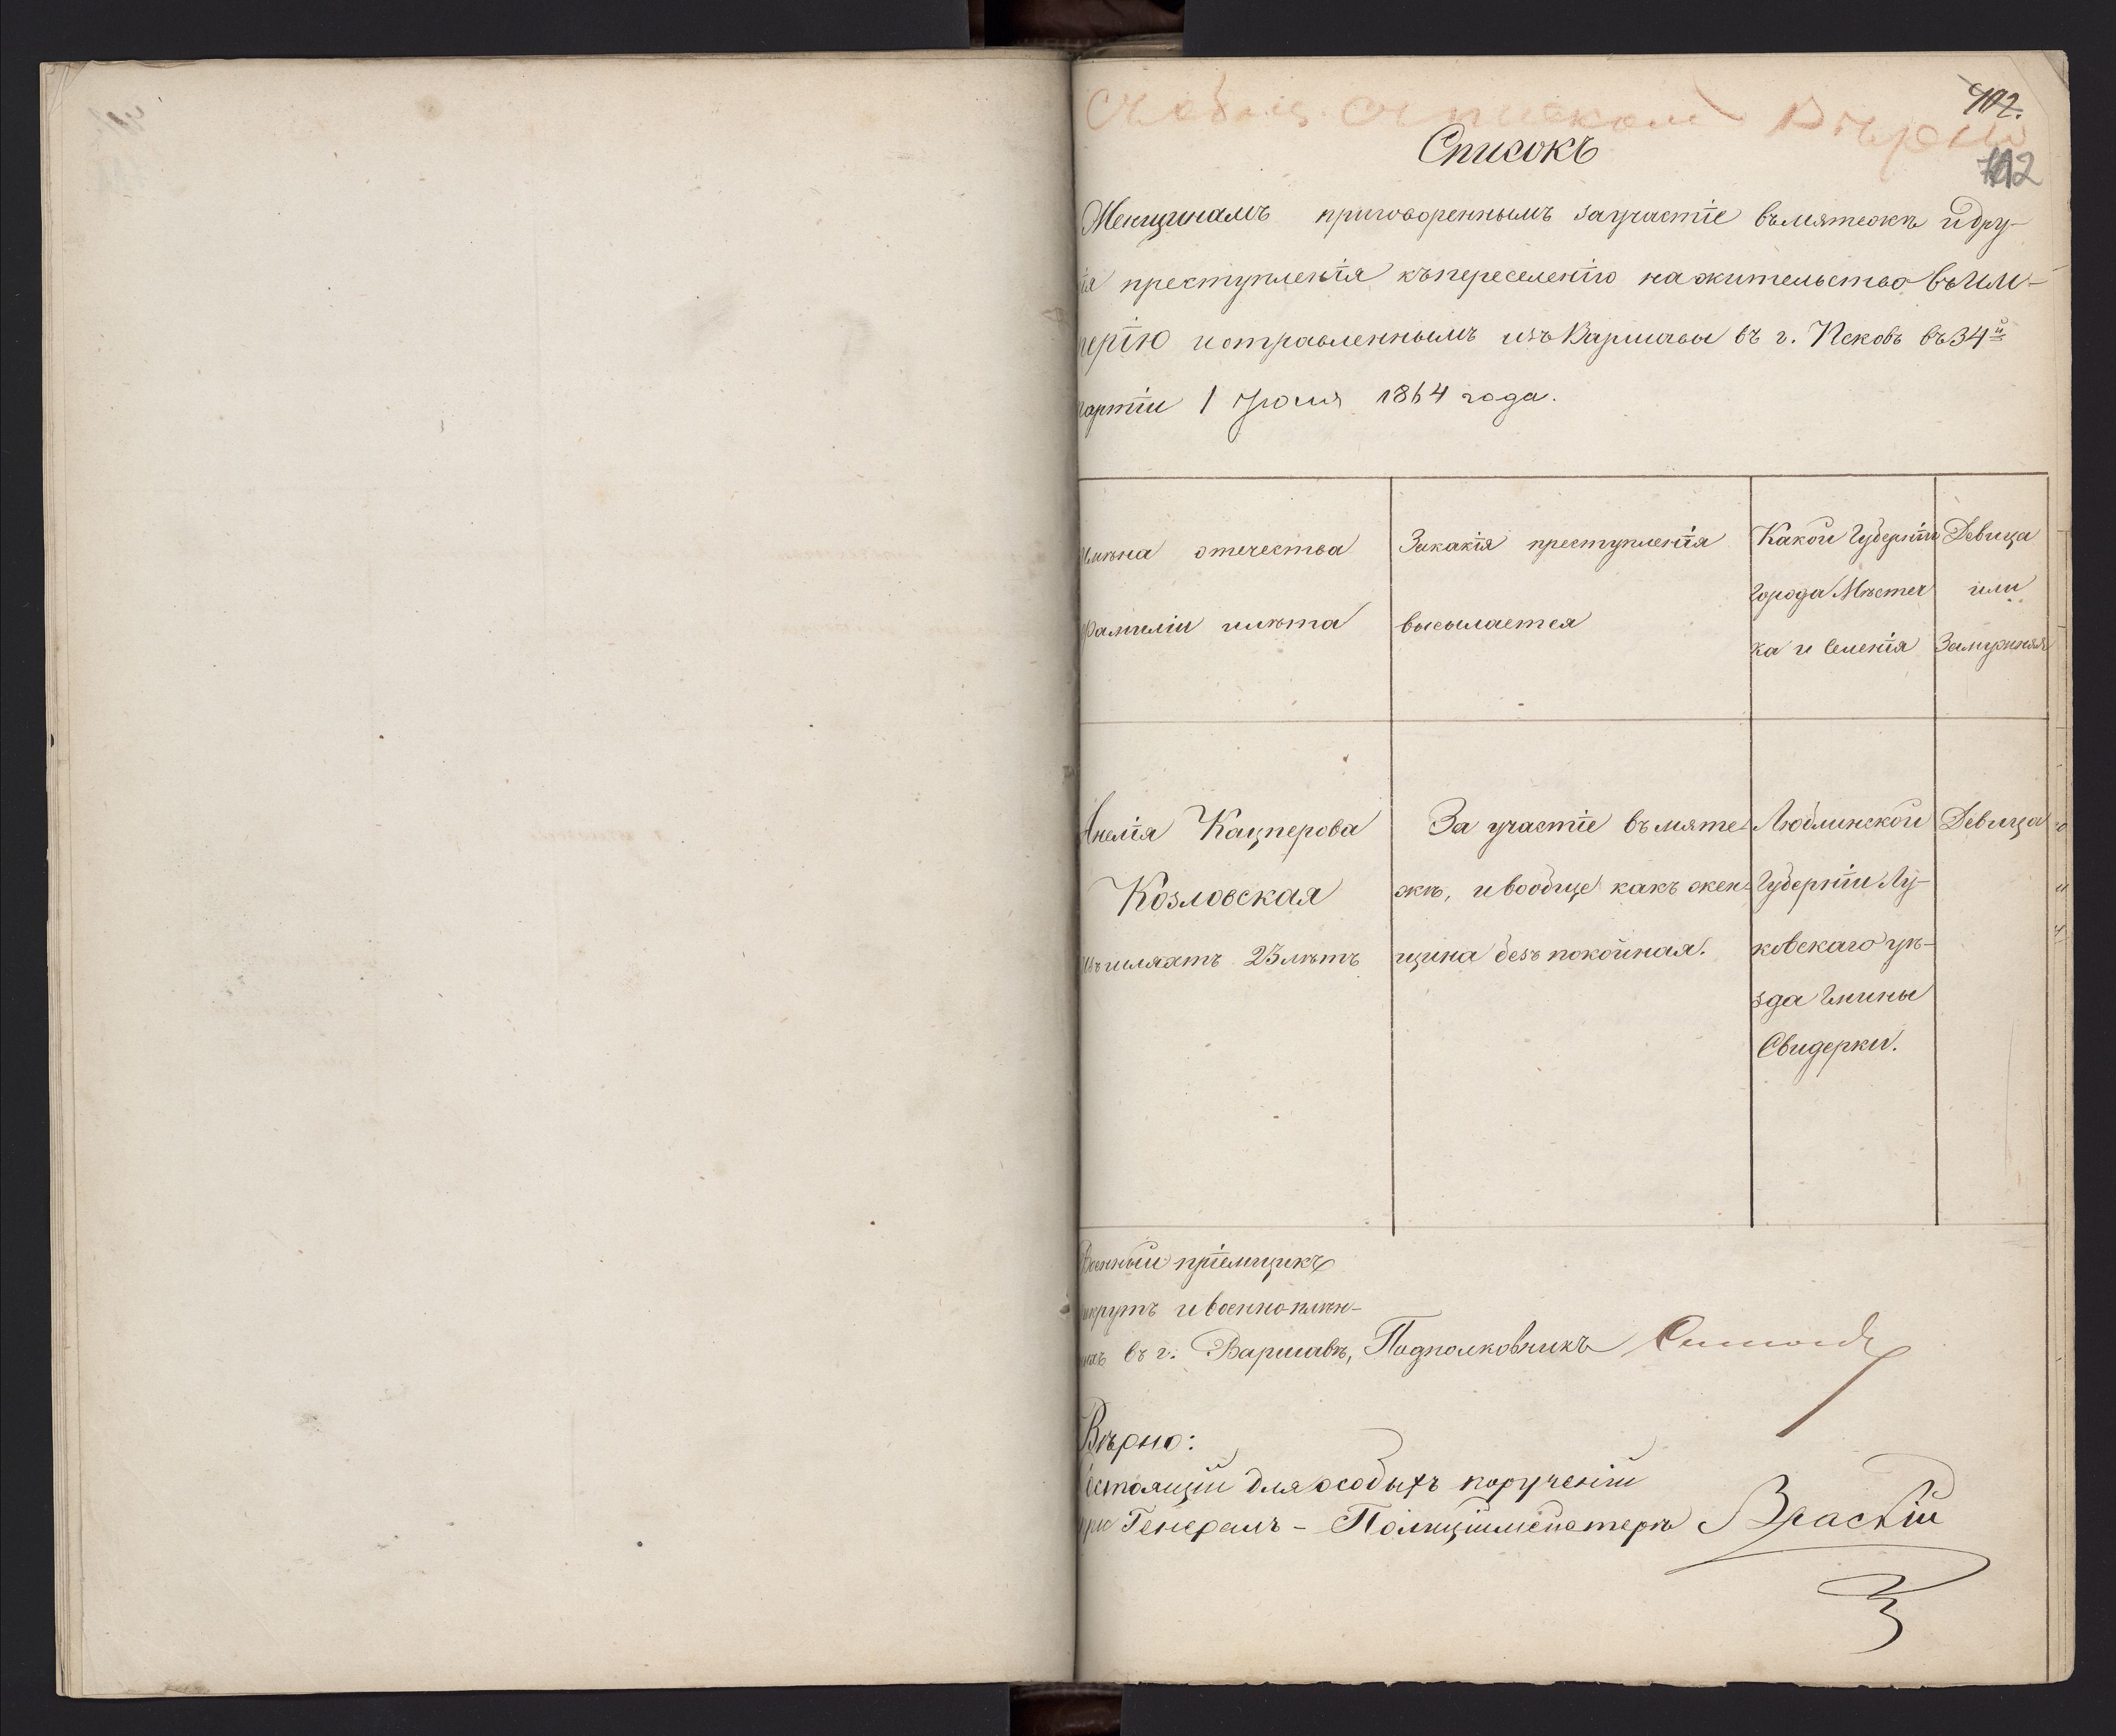 Съ общ. спискомъ Вѣрно
402.
Списокъ
Женщинамъ приговореннымъ за участіе въ мятежѣ и дру-
ія преступленія къ переселенію на жительство въ Им-
перію и отправленнымъ изъ Варшавы въ г. Псковъ въ 34й
партіи 1 Іюля 1864 года.
Имѣна отечества
Фамиліи и лѣта
За какія преступленія
высылается
Какой Губерніи
города Мѣстеч
ка и Селенія
Девица
или
Замужняя
Анелія Кацперова
Козловская
изъ шляхтъ 23 лѣтъ
За участіе въ мяте-
жѣ, и вообще какъ жен-
щина безъ покойная.
Люблинской
Губерніи Лу-
ковскаго уѣ-
зда Гмины
Свидерки.
Девица
Военный пріемщикъ
рекрутъ и военно-плѣн-
ныхъ въ г. Варшавѣ, Подполковникъ
Вѣрно:
Состоящій для особыхъ порученій
при Генералъ-Полиціймейстерѣ Власкій